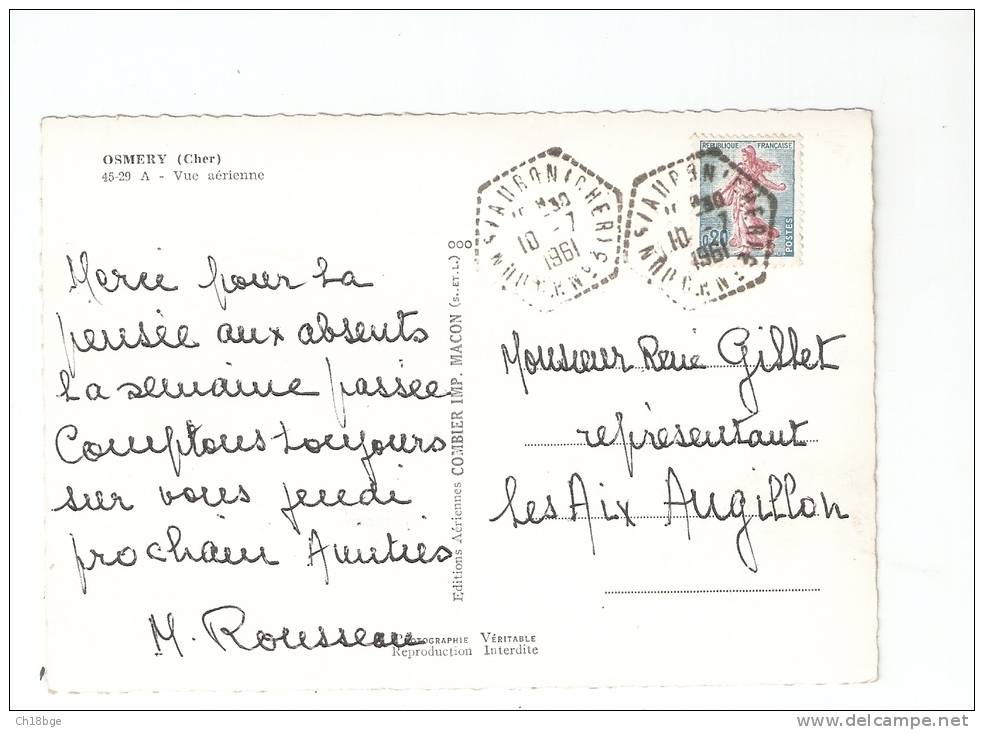 OSMERY (Cher)
45-29 A - Vue aérienne
Merci pour la
pensée aux absents
la semaine passée
Comptons toujours
sur vous jeudi
prochain Amitiés
M. Rousseau
Editions Aériennes COMBIER IMP. MACON (S.ET.L.)
PHOTOGRAPHIE VÉRITABLE
Reproduction Interdite
S/AURON (CHER)
10 - 7
1961
S/AURON (CHER)
10 - 7
1961
RÉPUBLIQUE FRANÇAISE
0,20
POSTES
Monsieur René Gillet
représentant
Les Aix Augillon
Ch18bge
www.delcampe.net